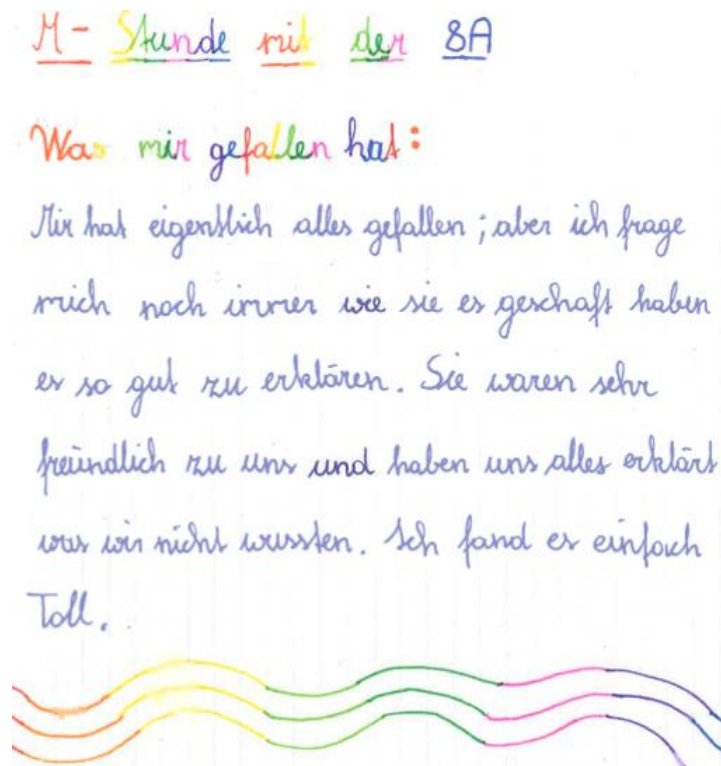 M- Stunde mit der 8A
Was mir gefallen hat:
Mir hat eigentlich alles gefallen; aber ich frage
mich noch immer wie sie es geschaft haben
es so gut zu erklären. Sie waren sehr
freundlich zu uns und haben uns alles erklärt
was wir nicht wussten. Ich fand es einfach
Toll.